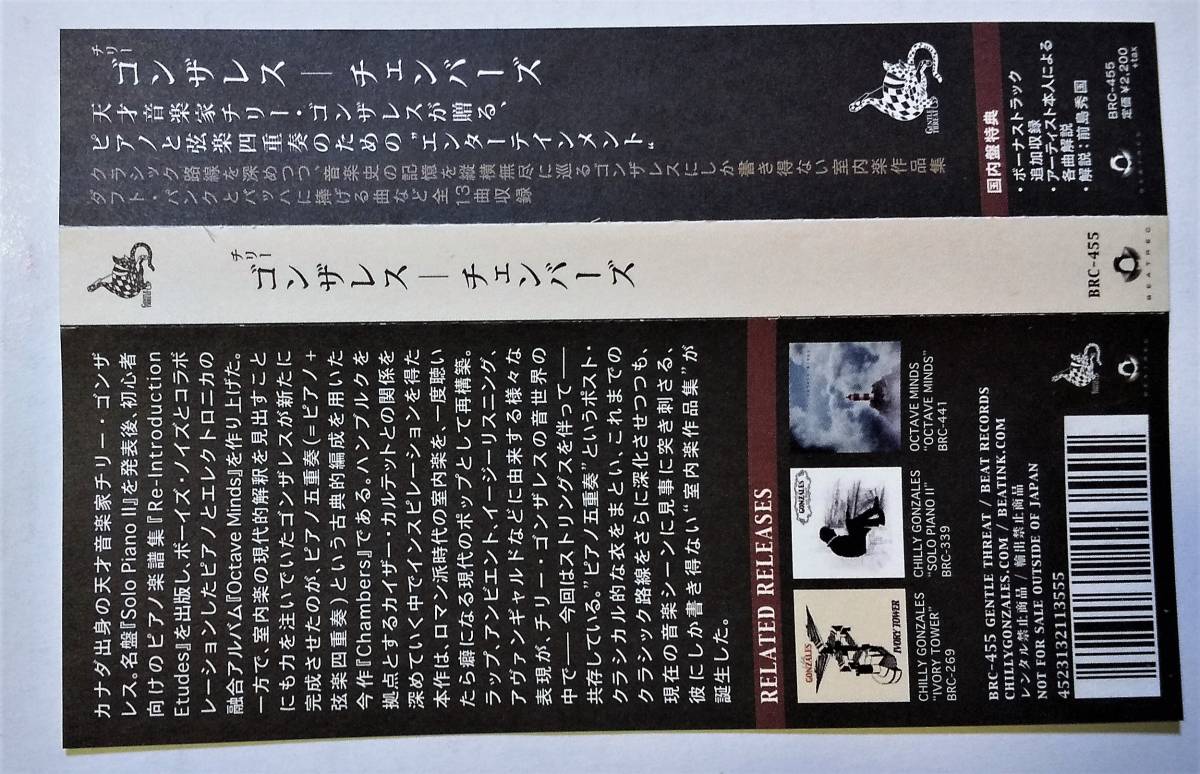 チリー
ゴンザレス｜チェンバーズ
天才音楽家チリー・ゴンザレスが贈る、
ピアノと弦楽四重奏のための"エンターテインメント"
クラシック路線を深めつつ、音楽史の記憶を縦横無尽に巡るゴンザレスにしか書き得ない室内楽作品集
ダフト・パンクとバッハに捧げる曲など全13曲収録
GENTLE THREAT
国内盤特典
・ボーナストラック
追加収録
・アーティスト本人による
各曲解説
・解説：前島秀国
BRC-455
定価¥2,200
+tax
BEATINK
チリー
ゴンザレス｜チェンバーズ
BRC-455
BEATREC
カナダ出身の天才音楽家チリー・ゴンザ
レス。名盤『Solo Piano II』を発表後、初心者
向けのピアノ楽譜集『Re-Introduction
Etudes』を出版し、ボーイズ・ノイズとコラボ
レーションしたピアノとエレクトロニカの
融合アルバム『Octave Minds』を作り上げた。
一方で、室内楽の現代的解釈を見出すこと
にも力を注いでいたゴンザレスが新たに
完成させたのが、ピアノ五重奏（=ピアノ+
弦楽四重奏）という古典的編成を用いた
今作『Chambers』である。ハンブルクを
拠点とするカイザー・カルテットとの関係を
深めていく中でインスピレーションを得た
本作は、ロマン派時代の室内楽を、一度聴い
たら癖になる現代のポップとして再構築。
ラップ、アンビエント、イージーリスニング、
アヴァンギャルドなどに由来する様々な
表現が、チリー・ゴンザレスの音世界の
中で――今回はストリングスを伴って――
共存している。"ピアノ五重奏"というポスト・
クラシカル的な衣をまとい、これまでの
クラシック路線をさらに深化させつつも、
現在の音楽シーンに見事に突き刺さる、
彼にしか書き得ない"室内楽作品集"が
誕生した。
RELATED RELEASES
GONZALES
IVORY TOWER
CHILLY GONZALES
"IVORY TOWER"
BRC-269
GONZALES
CHILLY GONZALES
"SOLO PIANO II"
BRC-339
OCTAVE MINDS
"OCTAVE MINDS"
BRC-441
BRC-455 GENTLE THREAT / BEAT RECORDS
CHILLYGONZALES.COM / BEATINK.COM
レンタル禁止商品 / 輸出禁止商品
NOT FOR SALE OUTSIDE OF JAPAN
4523132113555